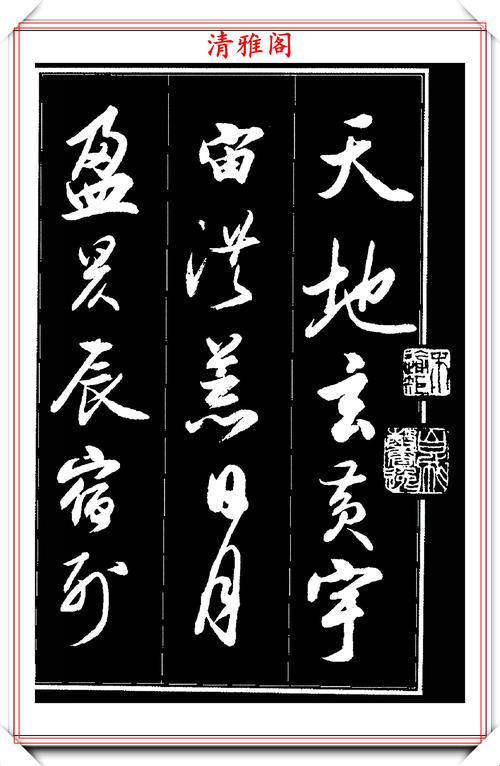 清雅阁
天地玄黄宇
宙洪荒日月
盈昃辰宿列